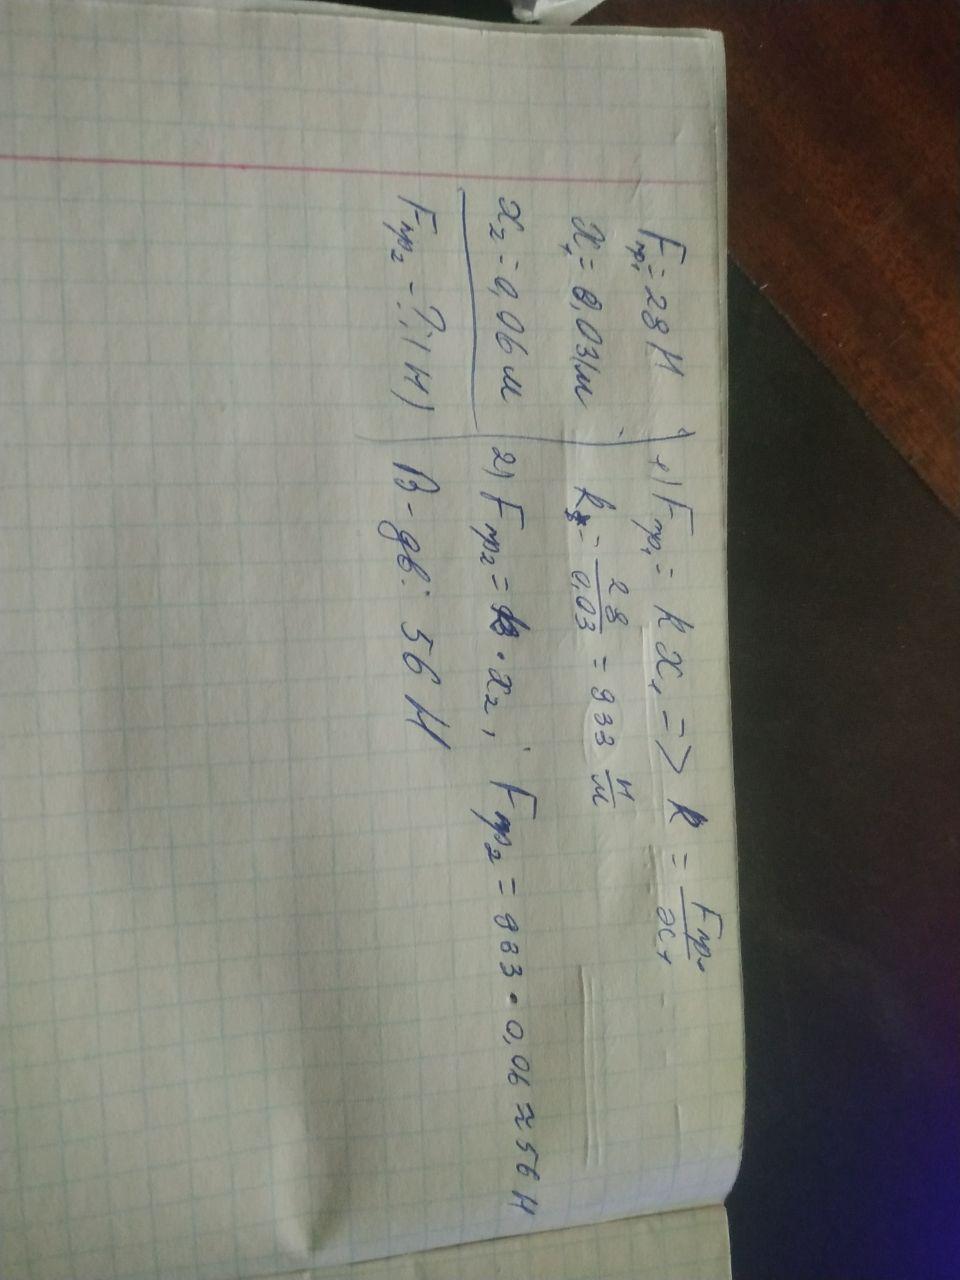 Fпр₁ = 28 Н
x₁ = 0,03 м
x₂ = 0,06 м
Fпр₂ - ?; (Н)
1) Fпр₁ = k x₁ => k = Fпр₁/x₁
k = 28/0,03 = 933 Н/м
2) Fпр₂ = k · x₂ ; Fпр₂ = 933 · 0,06 ≈ 56 Н
В-дь: 56 Н